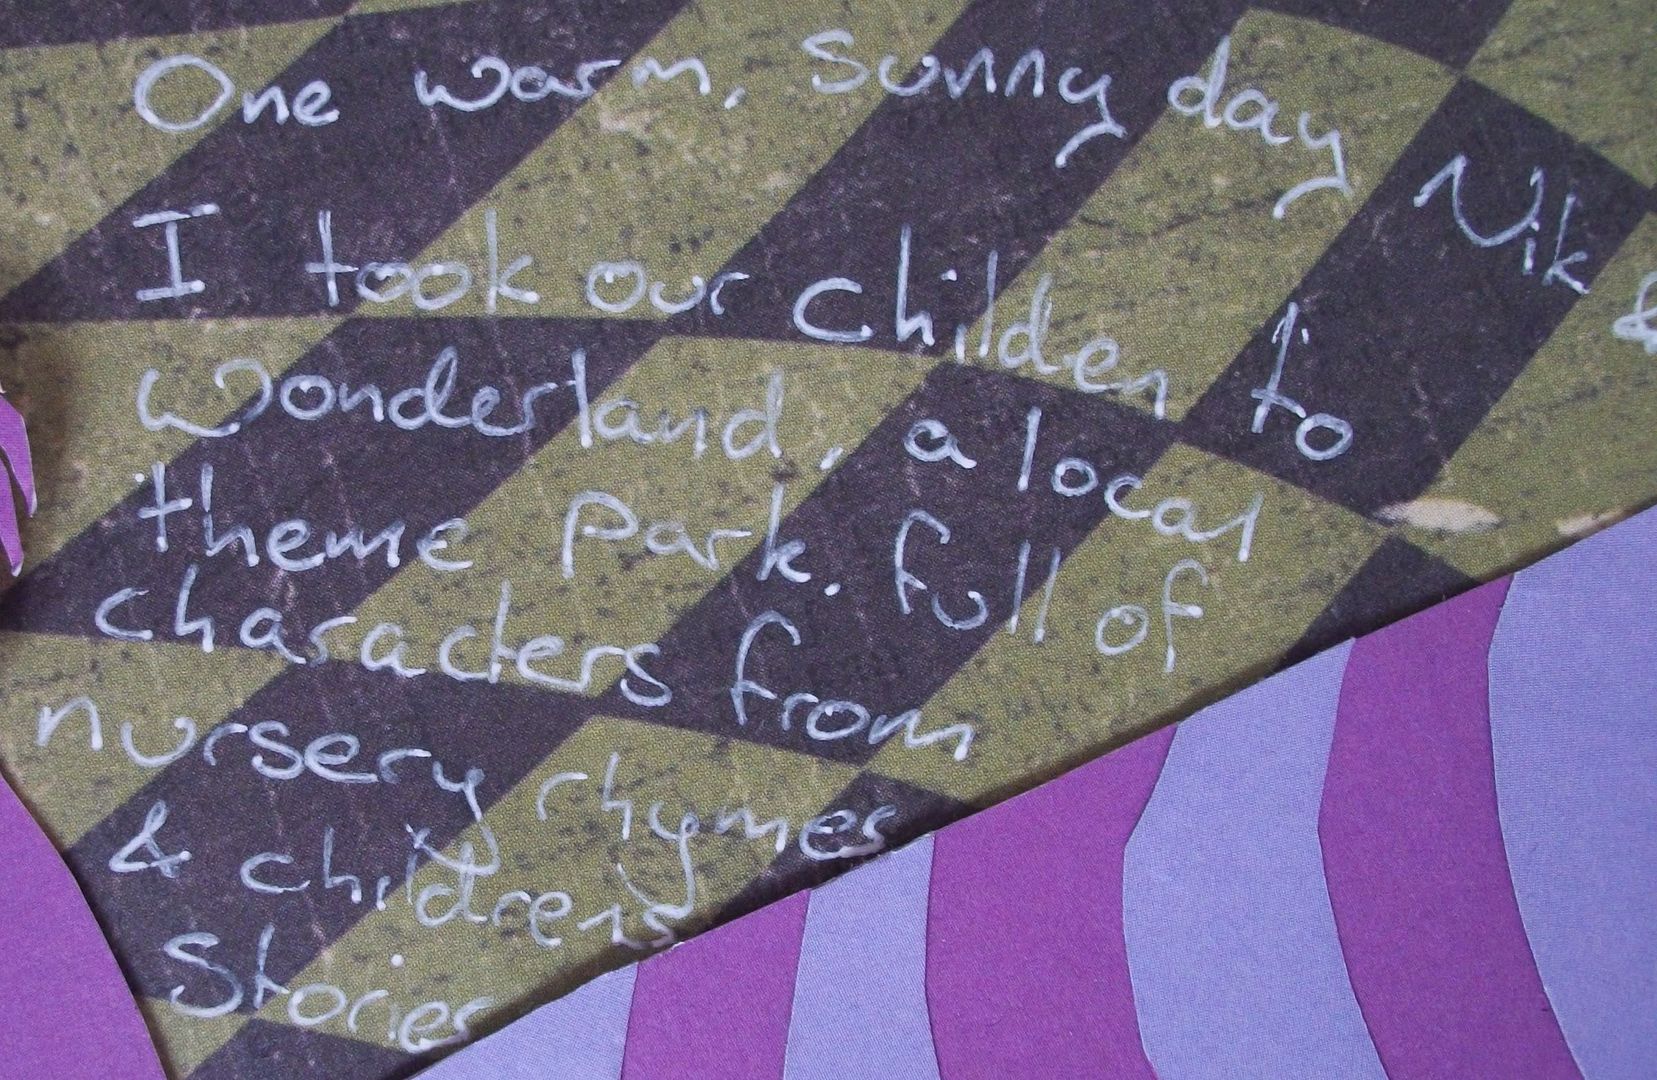 One warm, sunny day Nik &
I took our childen to
Wonderland, a local
theme park. full of
characters from
nursery rhymes
& childrens
Stories